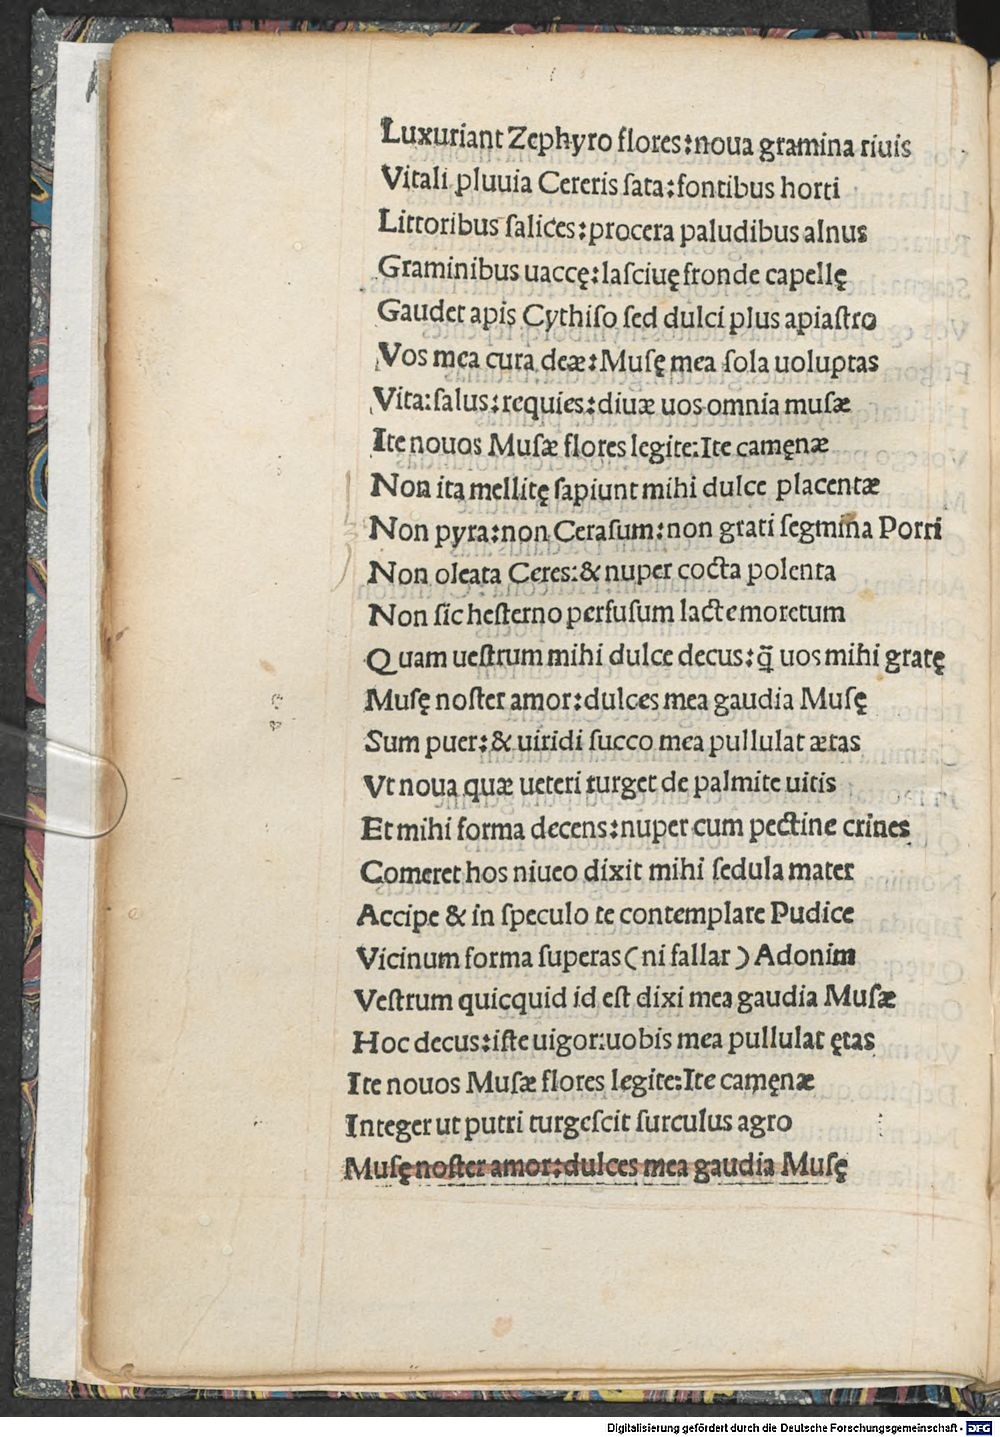 Luxuriant Zephyro flores:noua gramina riuis
Vitali pluuia Cereris ſata:fontibus horti
Littoribus ſalices:procera paludibus alnus
Graminibus uaccę:laſciuę fronde capellę
Gaudet apis Cythiſo ſed dulci plus apiaſtro
Vos mea cura deæ:Muſę mea ſola uoluptas
Vita:ſalus:requies:diuæ uos omnia muſæ
Ite nouos Muſæ flores legite:Ite camęnæ
Non ita mellitę ſapiunt mihi dulce placentæ
Non pyra:non Ceraſum:non grati ſegmina Porri
Non oleata Ceres:& nuper cocta polenta
Non ſic heſterno perfuſum lacte moretum
Quam ueſtrum mihi dulce decus:q̃ uos mihi gratę
Muſę noſter amor:dulces mea gaudia Muſę
Sum puer:& uiridi ſucco mea pullulat ætas
Vt noua quæ ueteri turget de palmite uitis
Et mihi forma decens:nuper cum pectine crines
Comeret hos niueo dixit mihi ſedula mater
Accipe & in ſpeculo te contemplare Pudice
Vicinum forma ſuperas (ni fallar) Adonim
Veſtrum quicquid id eſt dixi mea gaudia Muſæ
Hoc decus:iſte uigor:uobis mea pullulat ętas
Ite nouos Muſæ flores legite:Ite camęnæ
Integer ut putri turgeſcit ſurculus agro
Muſę noſter amor:dulces mea gaudia Muſę
Digitalisierung gefördert durch die Deutsche Forschungsgemeinschaft - DFG